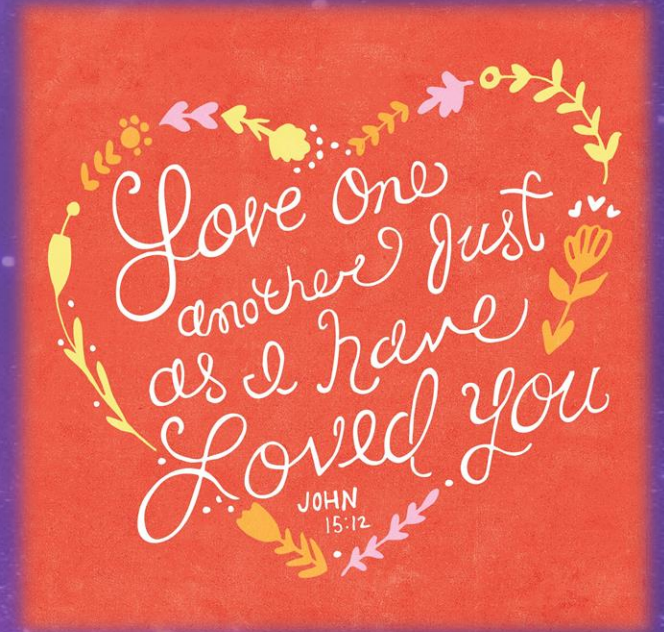 Love One
another Just
as I have
Loved You
JOHN
15:12